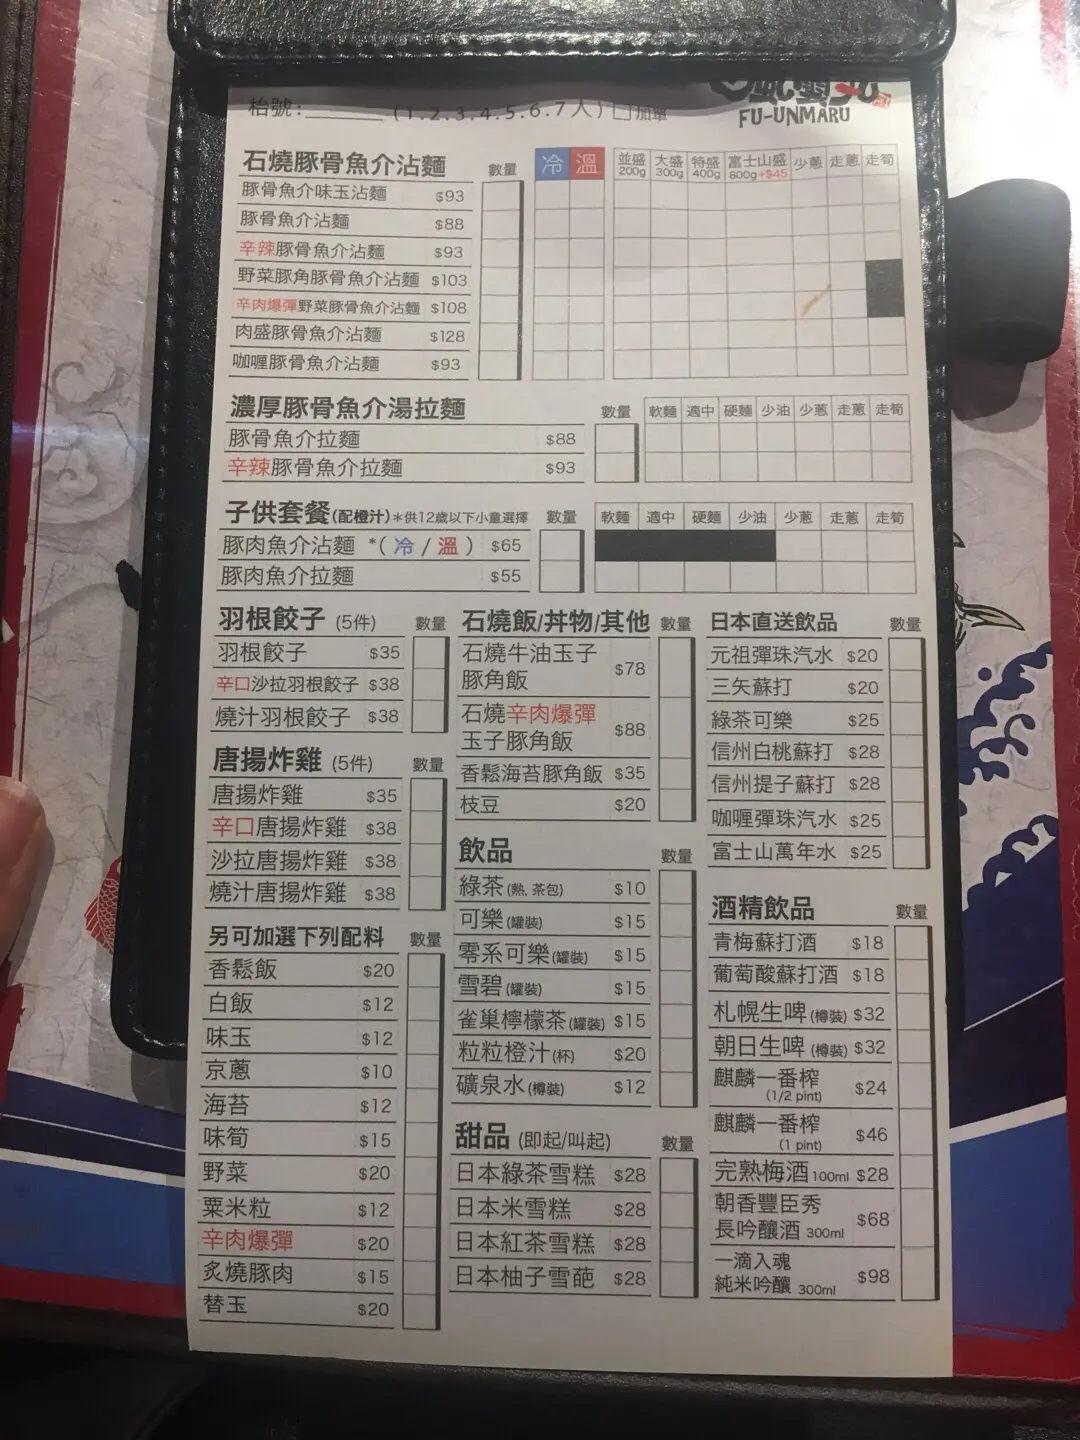 枱號:________ (1.2.3.4.5.6.7人) □加單
FU-UNMARU
石燒豚骨魚介沾麵 數量 冷 溫 並盛 200g 大盛 300g 特盛 400g 富士山盛 800g+$45 少蔥 走蔥 走筍
豚骨魚介味玉沾麵 $93
豚骨魚介沾麵 $88
辛辣豚骨魚介沾麵 $93
野菜豚角豚骨魚介沾麵 $103
辛肉爆彈野菜豚骨魚介沾麵 $108
肉盛豚骨魚介沾麵 $128
咖喱豚骨魚介沾麵 $93
濃厚豚骨魚介湯拉麵 數量 軟麵 適中 硬麵 少油 少蔥 走蔥 走筍
豚骨魚介拉麵 $88
辛辣豚骨魚介拉麵 $93
子供套餐(配橙汁)*供12歲以下小童選擇 數量 軟麵 適中 硬麵 少油 少蔥 走蔥 走筍
豚肉魚介沾麵 *(冷/溫) $65
豚肉魚介拉麵 $55
羽根餃子 (5件) 數量
羽根餃子 $35
辛口沙拉羽根餃子 $38
燒汁羽根餃子 $38
唐揚炸雞 (5件) 數量
唐揚炸雞 $35
辛口唐揚炸雞 $38
沙拉唐揚炸雞 $38
燒汁唐揚炸雞 $38
另可加選下列配料 數量
香鬆飯 $20
白飯 $12
味玉 $12
京蔥 $10
海苔 $12
味筍 $15
野菜 $20
粟米粒 $12
辛肉爆彈 $20
炙燒豚肉 $15
替玉 $20
石燒飯/丼物/其他 數量
石燒牛油玉子
豚角飯 $78
石燒辛肉爆彈
玉子豚角飯 $88
香鬆海苔豚角飯 $35
枝豆 $20
飲品 數量
綠茶(熱, 茶包) $10
可樂(罐裝) $15
零系可樂(罐裝) $15
雪碧(罐裝) $15
雀巢檸檬茶(罐裝) $15
粒粒橙汁(杯) $20
礦泉水(樽裝) $12
甜品 (即起/叫起) 數量
日本綠茶雪糕 $28
日本米雪糕 $28
日本紅茶雪糕 $28
日本柚子雪葩 $28
日本直送飲品 數量
元祖彈珠汽水 $20
三矢蘇打 $20
綠茶可樂 $25
信州白桃蘇打 $28
信州提子蘇打 $28
咖喱彈珠汽水 $25
富士山萬年水 $25
酒精飲品 數量
青梅蘇打酒 $18
葡萄酸蘇打酒 $18
札幌生啤(樽裝) $32
朝日生啤(樽裝) $32
麒麟一番榨
(1/2 pint) $24
麒麟一番榨
(1 pint) $46
完熟梅酒100ml $28
朝香豐臣秀
長吟釀酒 300ml $68
一滴入魂
純米吟釀 300ml $98